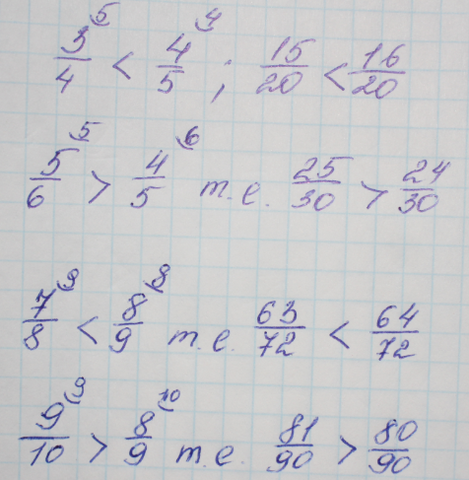 3/4 ⁽⁵ < 4/5 ⁽⁴ ; 15/20 < 16/20
5/6 ⁽⁵ > 4/5 ⁽⁶ т.е. 25/30 > 24/30
7/8 ⁽⁹ < 8/9 ⁽⁸ т.е. 63/72 < 64/72
9/10 ⁽⁹ > 8/9 ⁽¹⁰ т.е. 81/90 > 80/90